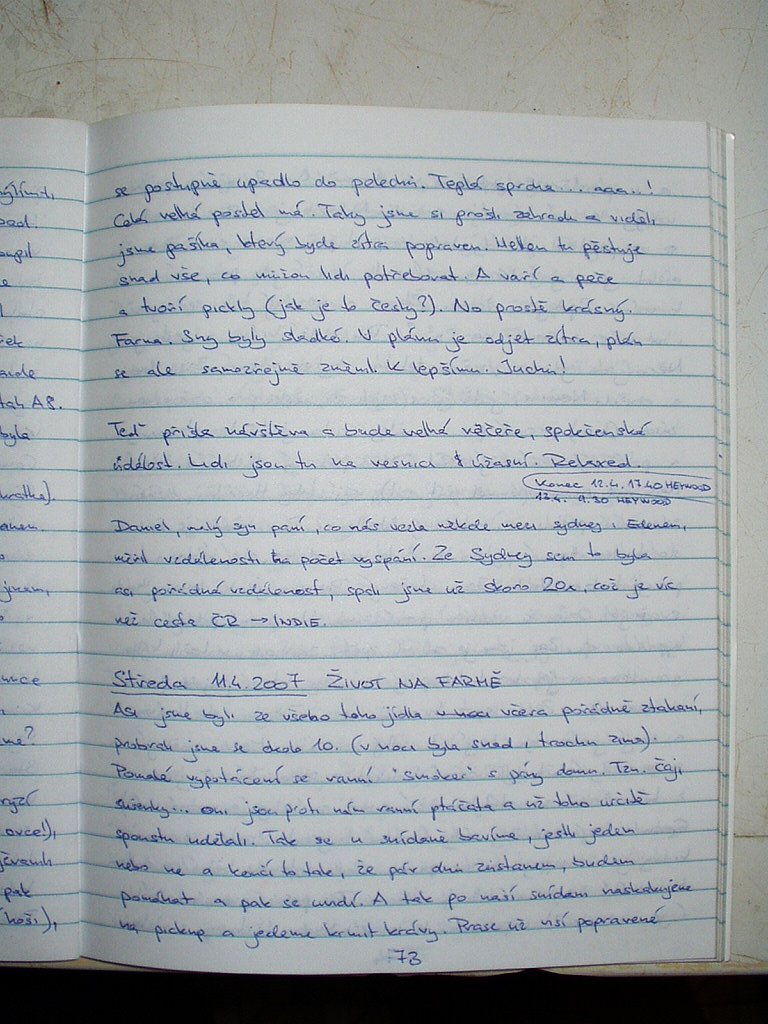 se postupně upadlo do polední. Teplá sprcha... aaa..!
Celá velká postel má. Taky jsme si prošli zahradu a viděli
jsme pašíka, který bude zítra popraven. Hellen tu pěstuje
snad vše, co můžou lidi potřebovat. A vaří a peče
a tvoří pickly (jak je to česky?). No prostě krásný.
Farma. Sny byly sladké. V plánu je odjet zítra, plán
se ale samozřejmě změnil. K lepšímu. Juchů!
Teď přišla návštěva a bude velká večeře, společenská
událost. Lidi jsou tu na vesnici úžasní. Relaxed.
Konec 12.4. 17.40 HEYWOOD
13.4. 9.30 HEYWOOD
Daniel, malý syn paní, co nás vezla někde mezi Sydney i Edenem,
měřil vzdálenosti na počet vyspání. Ze Sydney sem to byla
asi pořádná vzdálenost, spali jsme už skoro 20x, což je víc
než cesta ČR → INDIE.
Středa 11.4.2007 ŽIVOT NA FARMĚ
Asi jsme byli ze všeho toho jídla v noci včera pořádně ztahaní,
probrali jsme se okolo 10. (v noci byla snad i trochu zima).
Pomalé vypotácení se ranní "smoker" s pány domu. Tzn. čaj,
sušenky... oni jsou proti nám ranní ptáčata a už toho určitě
spoustu udělali. Tak se u snídaně bavíme, jestli jedem
nebo ne a končí to tak, že pár dní zůstanem, budem
pomáhat a pak se uvidí. A tak po naší snídani naskakujeme
na pickup a jedeme krmit krávy. Prase už visí popravené
73
ovce!),
pak
tah A8.
byla
me?